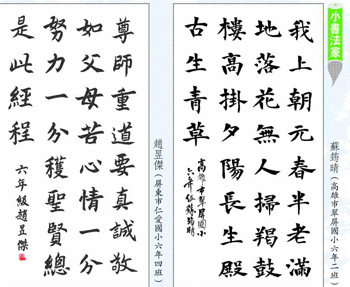 小書法家
蘇筠晴（高雄市翠屏國小六年二班）
我上朝元春半老滿
地落花無人掃羯鼓
樓高掛夕陽長生殿
古生青草
高雄市翠屏國小
蘇筠晴
趙昱傑（屏東市仁愛國小六年四班）
尊師重道要真誠敬
如父母苦心情一分
努力一分穫聖賢總
是此經程
六年級趙昱傑